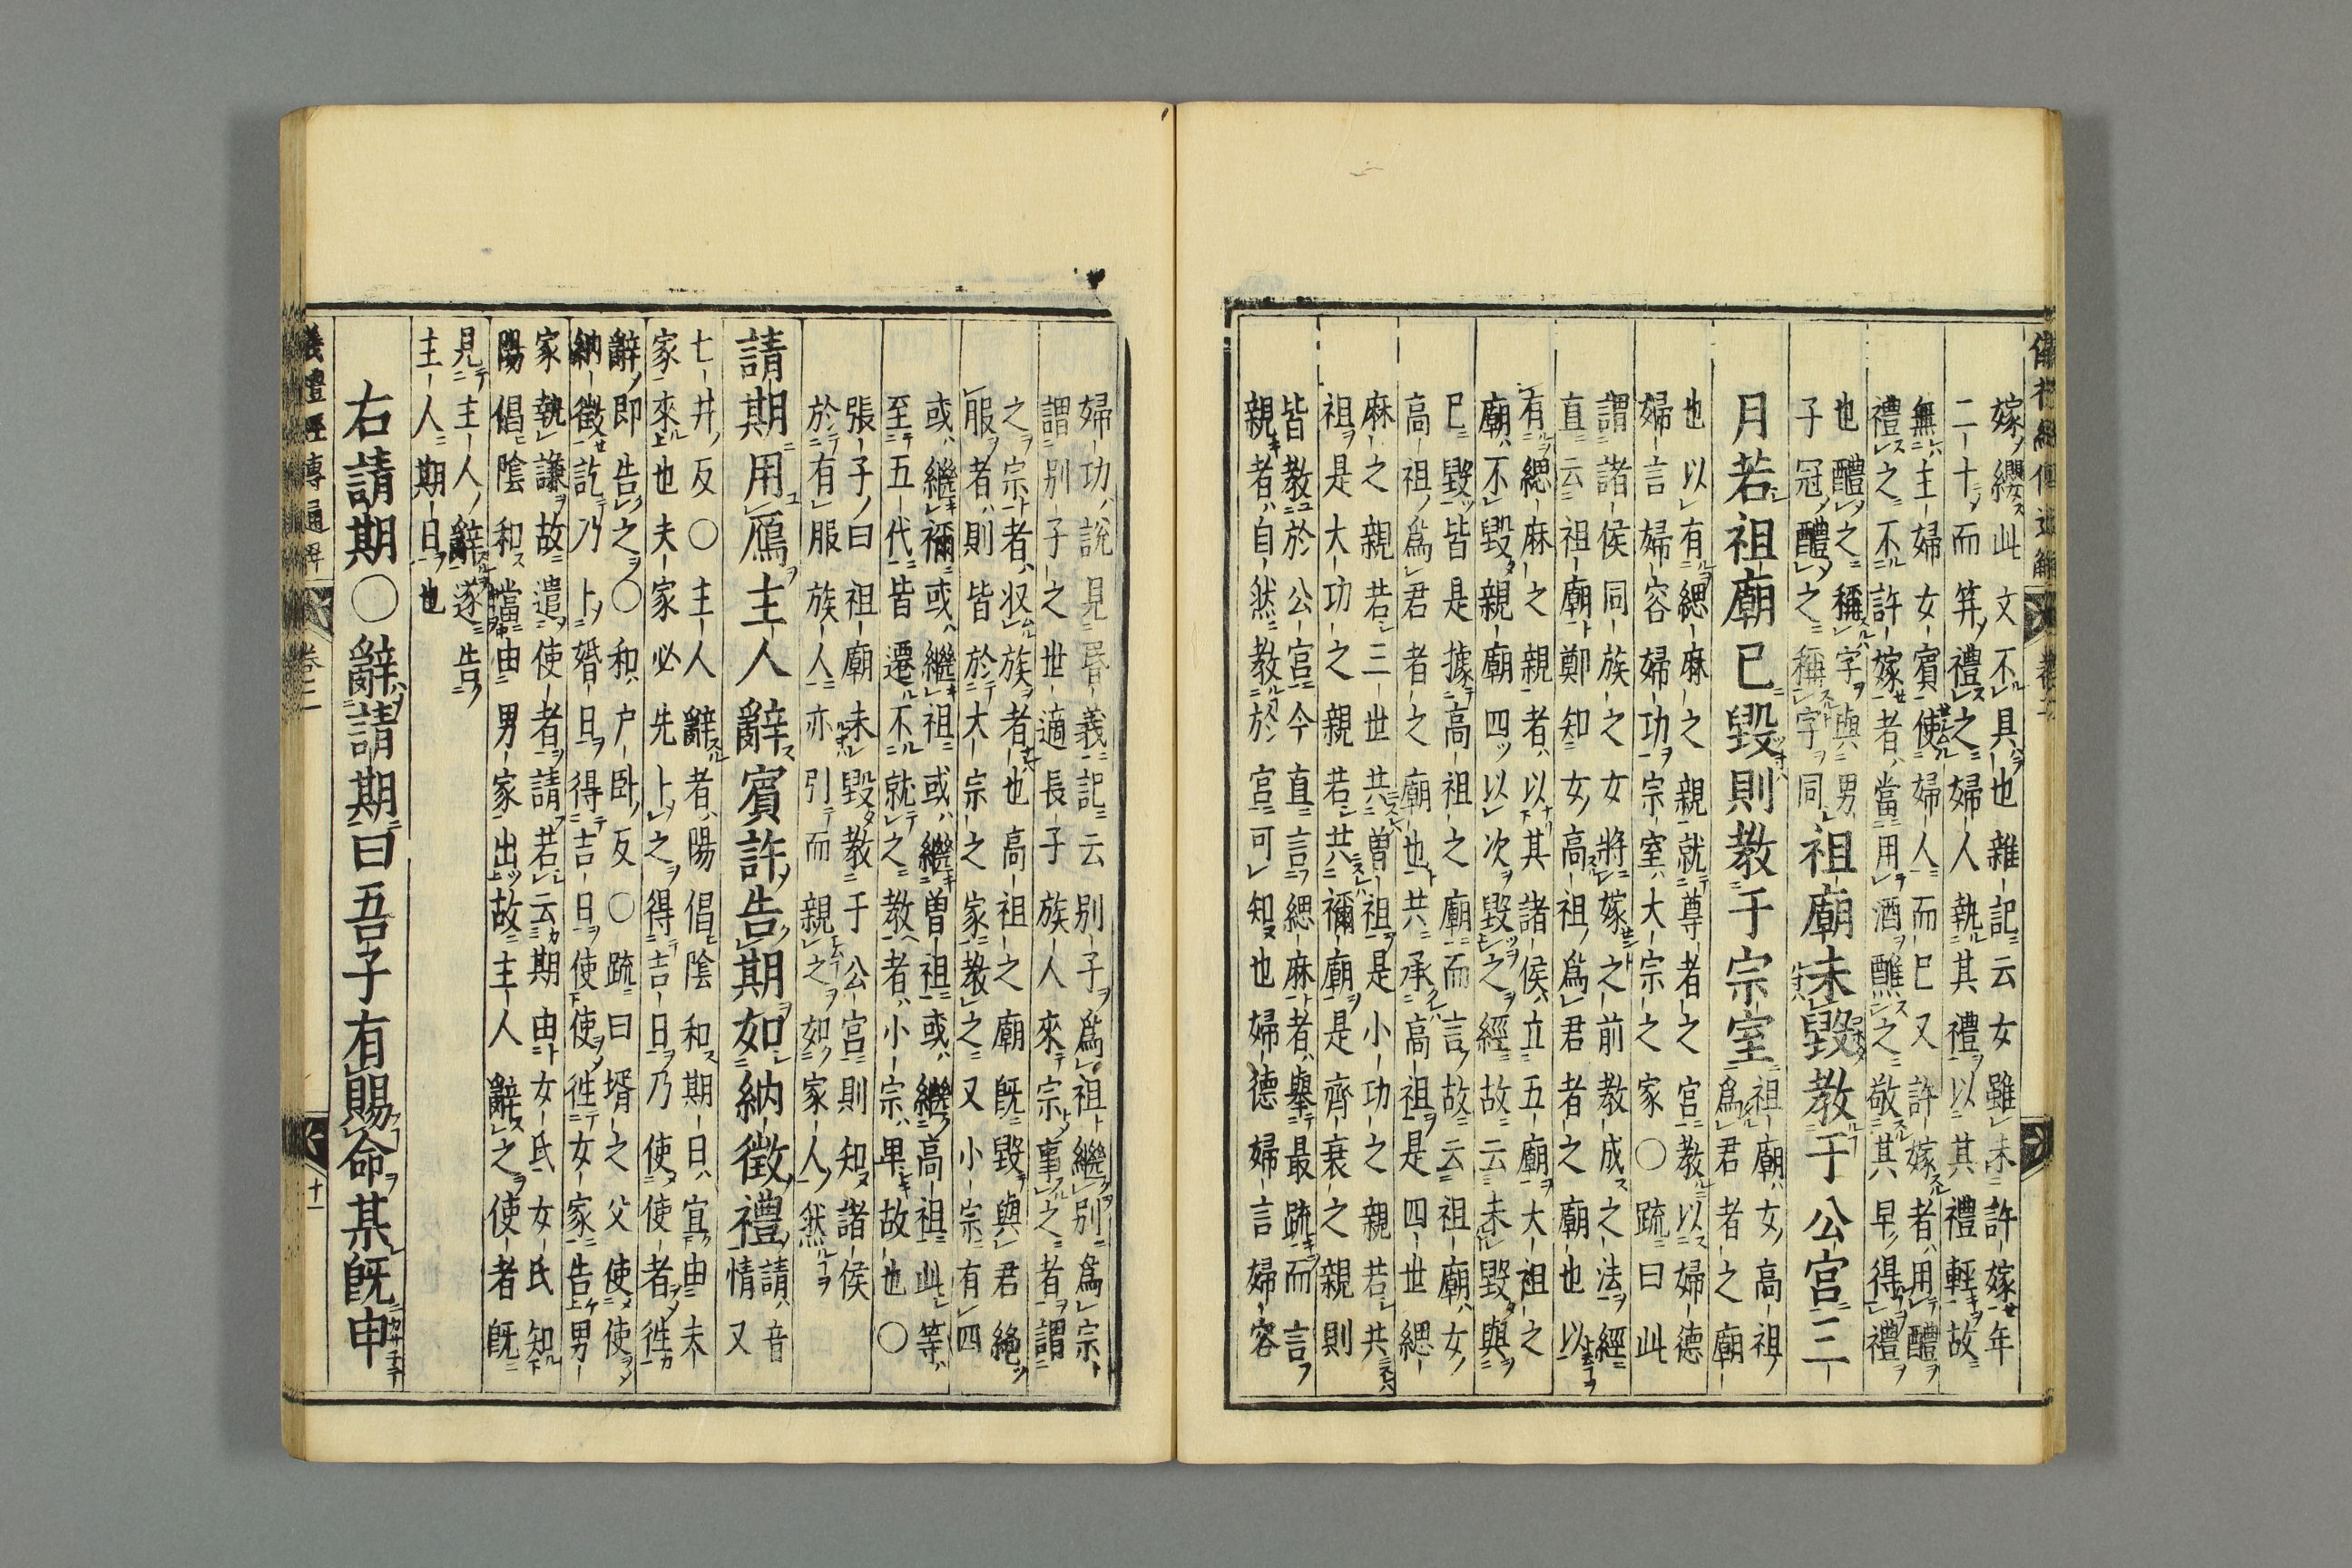 嫁纓此文不具也雜記云女雖未許嫁年
二十而筓禮之婦人執其禮以其禮輕故
無主婦女賓使婦人而已又許嫁者用醴
禮之不許嫁者當用酒醮之敬其早得禮
也醴之稱字與男
子冠醴之稱字同
祖廟未毀教于公宮三
月若祖廟已毀則教于宗室
祖廟女高祖
爲君者之廟
也以有緦麻之親就尊者之宮教以婦德
婦言婦容婦功宗室大宗之家○疏曰此
謂諸侯同族之女將嫁之前教成之法經
直云祖廟鄭知女高祖爲君者之廟也以
有緦麻之親者以其諸侯立五廟大祖之
廟不毀親廟四以次毀之經故云未毀與
已毀皆是據高祖之廟而言故云祖廟女
高祖爲君者之廟也共承高祖是四世緦
麻之親若三世共曽祖是小功之親若共
祖是大功之親若共禰廟是齊衰之親則
皆教於公宮今直言緦麻者舉最疏而言
親者自然教於宮可知也婦德婦言婦容
婦功說見昏義記云別子爲祖繼別爲宗
謂別子之世適長子族人來宗事之者謂
之宗者収族者也高祖之廟既毀與君絶
服者則皆於大宗之家教之又小宗有四
或繼禰或繼祖或繼曽祖或繼高祖此等
至五代皆遷不就之教者小宗卑故也○
張子曰祖廟未毀教于公宮則知諸侯
於有服族人亦引而親之如家人然
請期用鴈主人辭賓許告期如納徵禮
請音
情又
七井反○主人辭者陽倡陰和期日宜由夫
家來也夫家必先卜之得吉日乃使使者徃
辭即告之○和戶臥反○疏曰壻之父使使
納徵訖乃卜婚日得吉日使使徃女家告男
家執謙故遣使者請若云期由女氏女氏知
陽倡陰和當由男家出故主人辭之使者既
見主人辭遂告
主人期日也
右請期○辭請期曰吾子有賜命某既申
儀禮經傳通解
卷二
十一